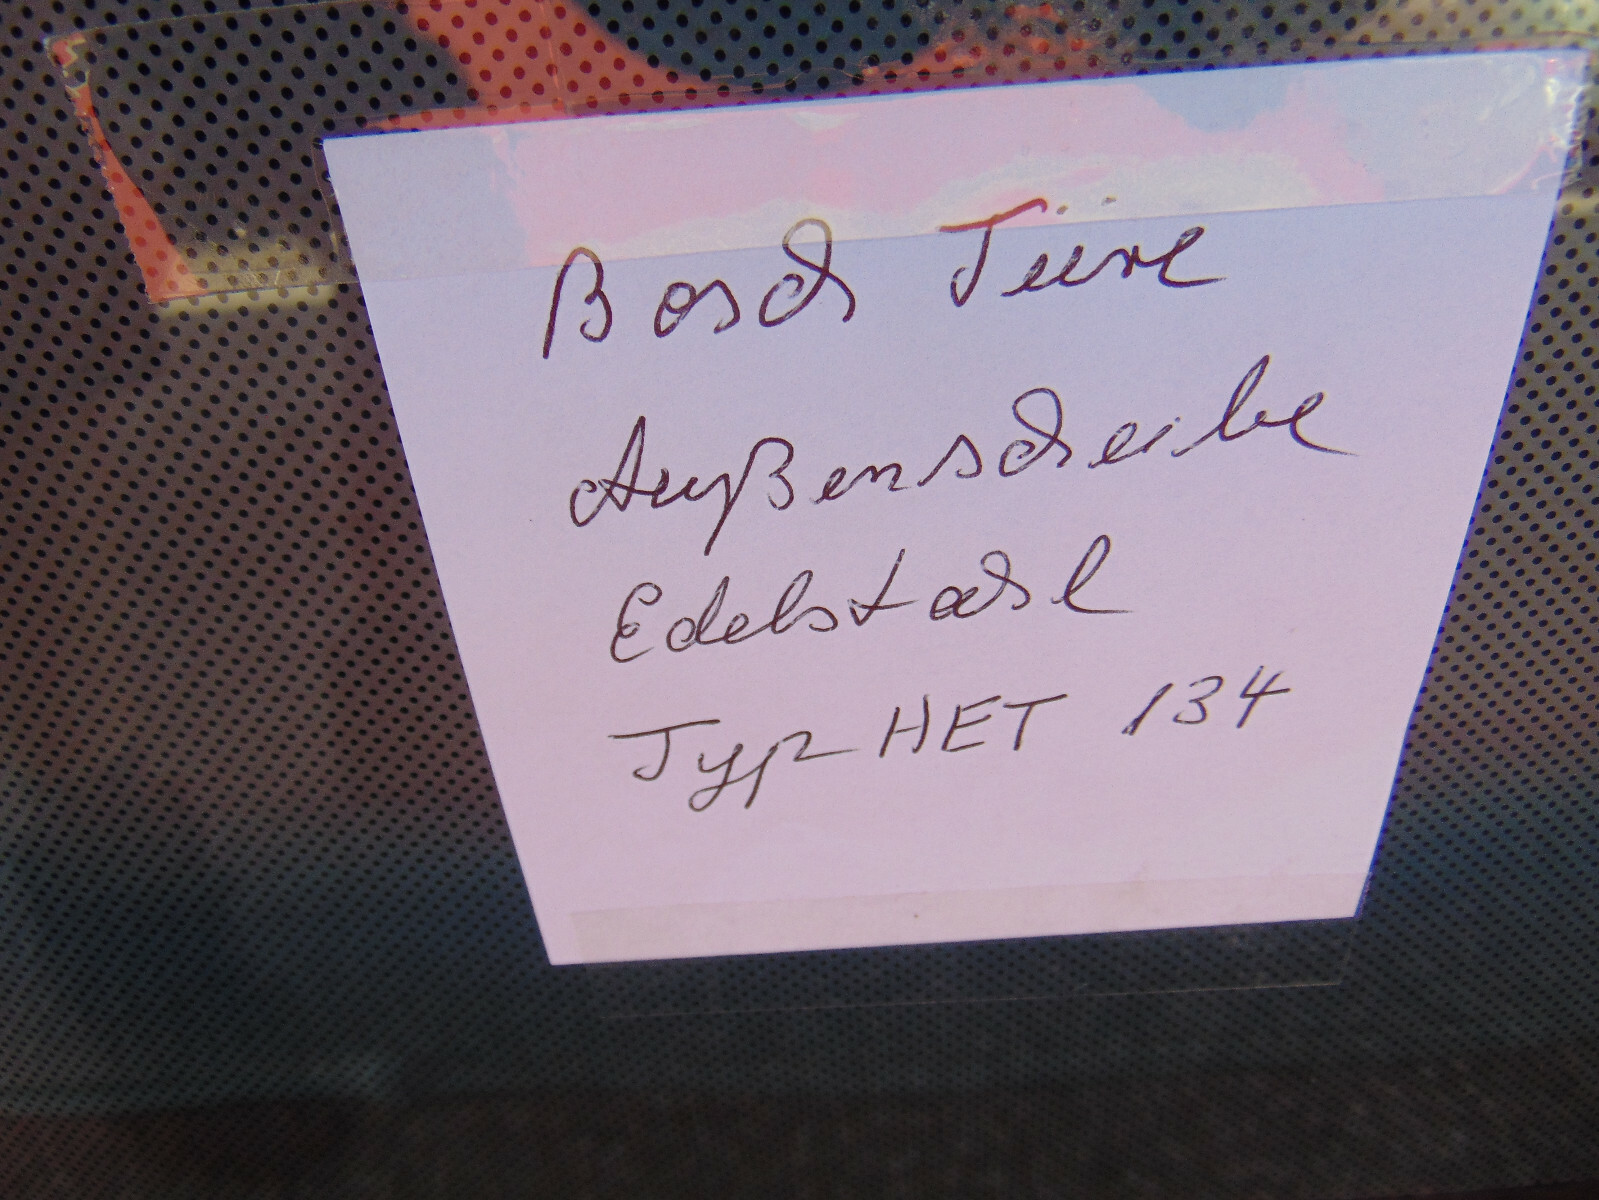 Bosch Türe
Außenscheibe
Edelstahl
Typ HET 134